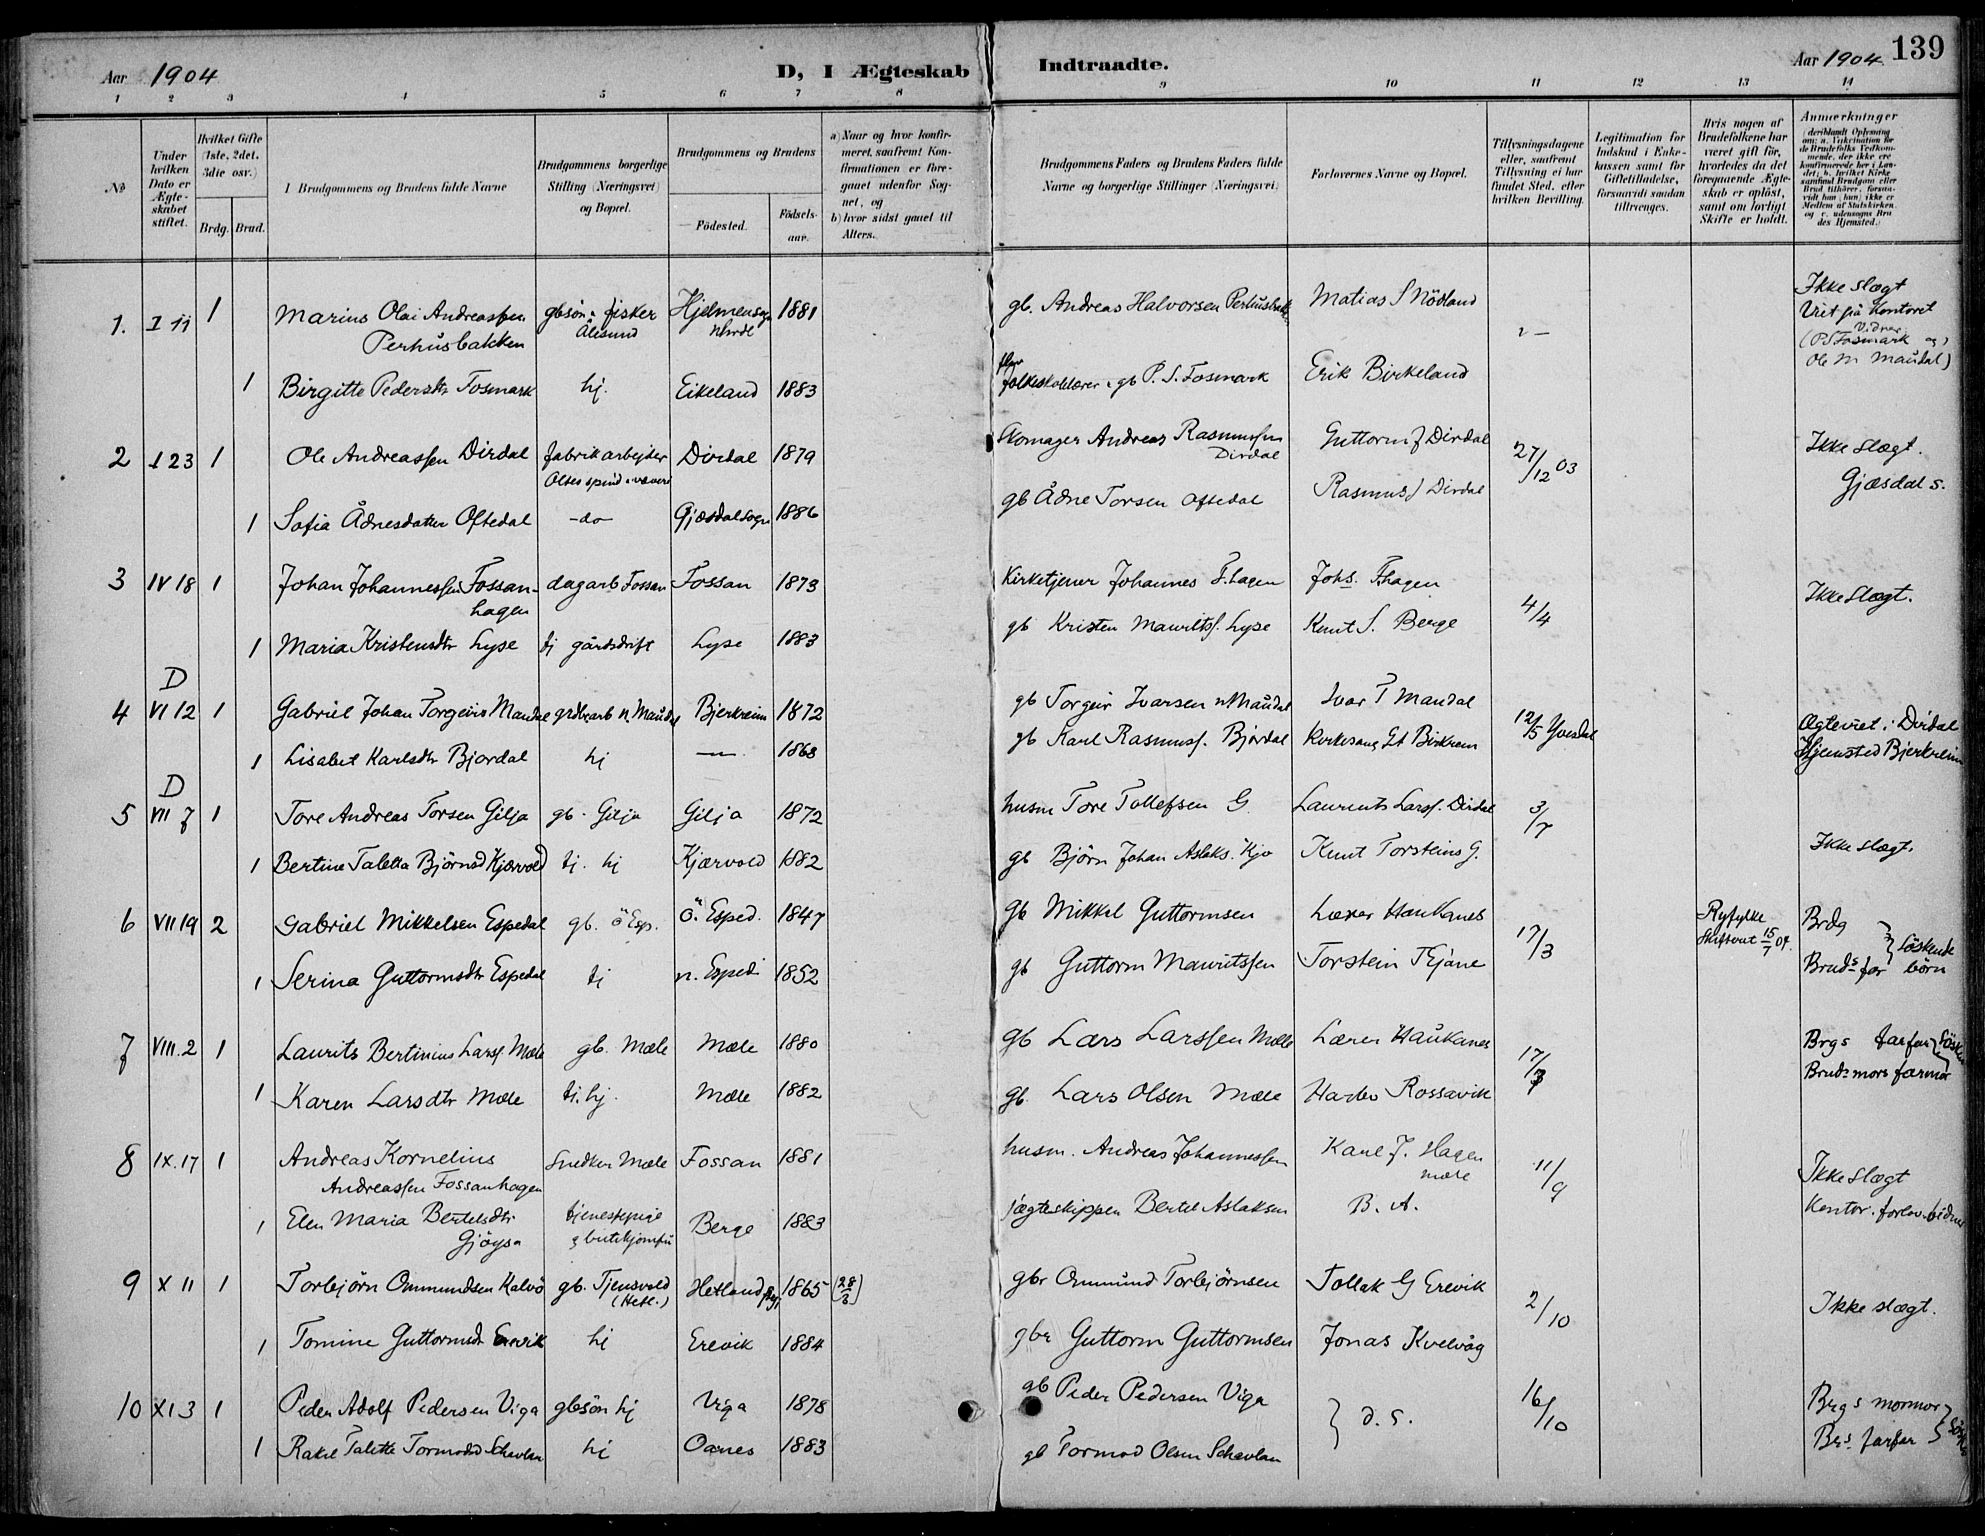 Aar 1904
D, I Ægteskab
Indtraadte.
Aar 1904
139
1 2 3 4 5 6 7 8 9 10 11 12 13 14
No
Under hvilken Dato er Ægteskabet stiftet.
Hvilket Gifte (1ste, 2det, 3die osv.)
Brdg. Brud.
1 Brudgommens og Brudens fulde Navne
Brudgommens borgerlige Stilling (Næringsvei) og Bopæl.
Brudgommens og Brudens
Fødested.
Fødselsaar.
a) Naar og hvor konfirmeret, saafremt Konfirmationen er foregaaet udenfor Sognet, og
b) hvor sidst gaaet til Alters.
Brudgommens Faders og Brudens Faders fulde Navne og borgerlige Stillinger (Næringsvei)
Forlovernes Navne og Bopæl.
Tillysningsdagene eller, saafremt Tillysning ei har fundet Sted, efter hvilken Bevilling.
Legitimation for Indskud i Enkekassen samt for Giftetilladelse, forsaavidt saadan tiltrænges.
Hvis nogen af Brudefolkene har været gift før, hvorledes da det foregaaende Ægteskab er opløst, samt om lovligt Skifte er holdt.
Anmærkninger
(deriblandt Oplysning om: a. Vakcination for de Brudefolks Vedkommende, der ikke ere konfirmerede her i Landet; b. hvilket Kirkesamfund Brudgom eller Brud tilhører, forsaavidt han (hun) ikke er Medlem af Statskirken, og c. udensogns Brudes Hjemsted.)
1. I 11 1 Marius Olai Andreassen Perhusbakken gbsøn & fisker Ålesund Hjelmensogn 1881 gb. Andreas Halvorsen Perhusbak Matias S Nödland
Ikke slægt
Viet på Kontoret
Vidner
(P S Fosmark og
Ole M Maudal)
1 Birgitte Pedersdtr Fosmark hj. Eikeland 1883 folkeskolelærer & gb P. S. Fosmark Erik Birkeland
2 I 23 1 Ole Andreassen Dirdal fabrikarbejder Dirdal 1879 Skomager Andreas Rasmussen Dirdal Guttorm J Dirdal 27/12 03 Ikke slægt.
Gjæsdal s.
1 Sofia Ådnesdatter Oftedal -do- Gjæsdalsogn 1886 gb Ådne Torsen Oftedal Rasmus J Dirdal
3 IV 18 1 Johan Johannessen Fossanhagen dagarb Fossan Fossan 1873 Kirketjener Johannes F.hagen Johs. F.hagen 4/4 Ikke slægt.
1 Maria Kristensdtr Lyse tj gårdsdrift Lyse 1883 gb Kristen Mauritss. Lyse Knut S. Berge
D
4 VI 12 1 Gabriel Johan Torgeirs Maudal grdbrarb n Maudal Bjerkreim 1872 gb Torgeir Ivarsen n Maudal Ivar T Maudal 12/5 Ægteviet i Dirdal
Hjemsted Bjerkreim
1 Lisabet Karlsdtr Bjordal hj — 1868 gb Karl Rasmuss. Bjordal Kirkesang
D
5 VII 7 1 Tore Andreas Torsen Gilja gb. Gilja Gilja 1872 husm Tore Tollefsen G Laurents Larss. Dirdal 3/7 Ikke slægt.
1 Bertine Taletta Björnsd Kjærvold tj. hj Kjærvold 1882 gb Björn Johan Aslaks. Kjv Knut Torsteins G.
6 VII 19 2 Gabriel Mikkelsen Espedal gb. ö Esp. ö. Esped. 1847 Gb Mikkel Guttormsen Lærer Haukanes 17/3 Ryfylke Skifteret 15/7 04. Brdg
Bruds far } Söskende börn
1 Serina Guttormsdtr Espedal tj n. Esped 1852 gb Guttorm Mauritssen Torstein Tejane
7 VIII. 2 1 Laurits Bertinius Larss. Mæle gb. Mæle Mæle 1880 gb Lars Larssen Mæle Lærer Haukanes 17/7 Brgs farfar
Bruds mors farmor
1 Karen Larsdtr Mæle tj. hj. Mæle 1882 gb. Lars Olsen Mæle Rossavik
8 IX. 17 1 Andreas Kornelius Andreassen Fossanhagen Snedker Mæle Fossan 1881 husm. Andreas Johannessen Karl J. Hagen mæle 11/9 Ikke slægt
Kontor. forlov. vidner
1 Elen Maria Bertelsdtr Gjöysa tjenestepige Berge 1883 jægteskipper Bertel Aslaksen B. A.
9 X 11 1 Torbjörn Ommundsen Kalvö gb. Tjensvold (Hetl.) Hetland 1865 (28/3) gbr Ommund Torbjörnsen Tollak G Erevik 2/10 Ikke slægt.
1 Tomine Guttormsdtr Erevik hj Erevik 1884 gbr Guttorm Guttormsen Jonas Kvelvåg
10 XI 3 1 Peder Adolf Pedersen Viga gbsön hj Viga 1878 gb Peder Pedersen Viga } d. s. 16/10 Brgs mormor
Brs farfar
1 Rakel Talette Tormodsd Schavlan hj Oanes 1883 gb Tormod Olsen Schavlan